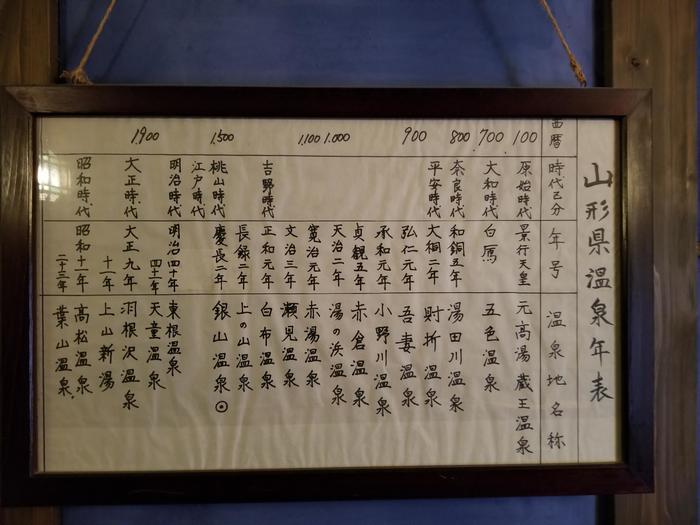 山形県温泉年表
西暦 時代区分 年号 温泉地名称
100 原始時代 景行天皇 元高湯蔵王温泉
700 大和時代 白鳳 五色温泉
800 奈良時代 和銅五年 湯田川温泉
平安時代 大桐二年 肘折温泉
900 弘仁元年 吾妻温泉
承和元年 小野川温泉
貞観五年 赤倉温泉
1.000 天治二年 湯の浜温泉
1.100 寛治元年 赤湯温泉
文治三年 瀬見温泉
吉野時代 正和元年 白布温泉
長録二年 上の山温泉
1.500 桃山時代 慶長二年 銀山温泉
江戸時代
明治時代 明治四十年 東根温泉
四十年 天童温泉
1.900 大正時代 大正九年 羽根沢温泉
十一年 上山新湯
昭和時代 昭和十一年 高松温泉
二十三年 葉山温泉